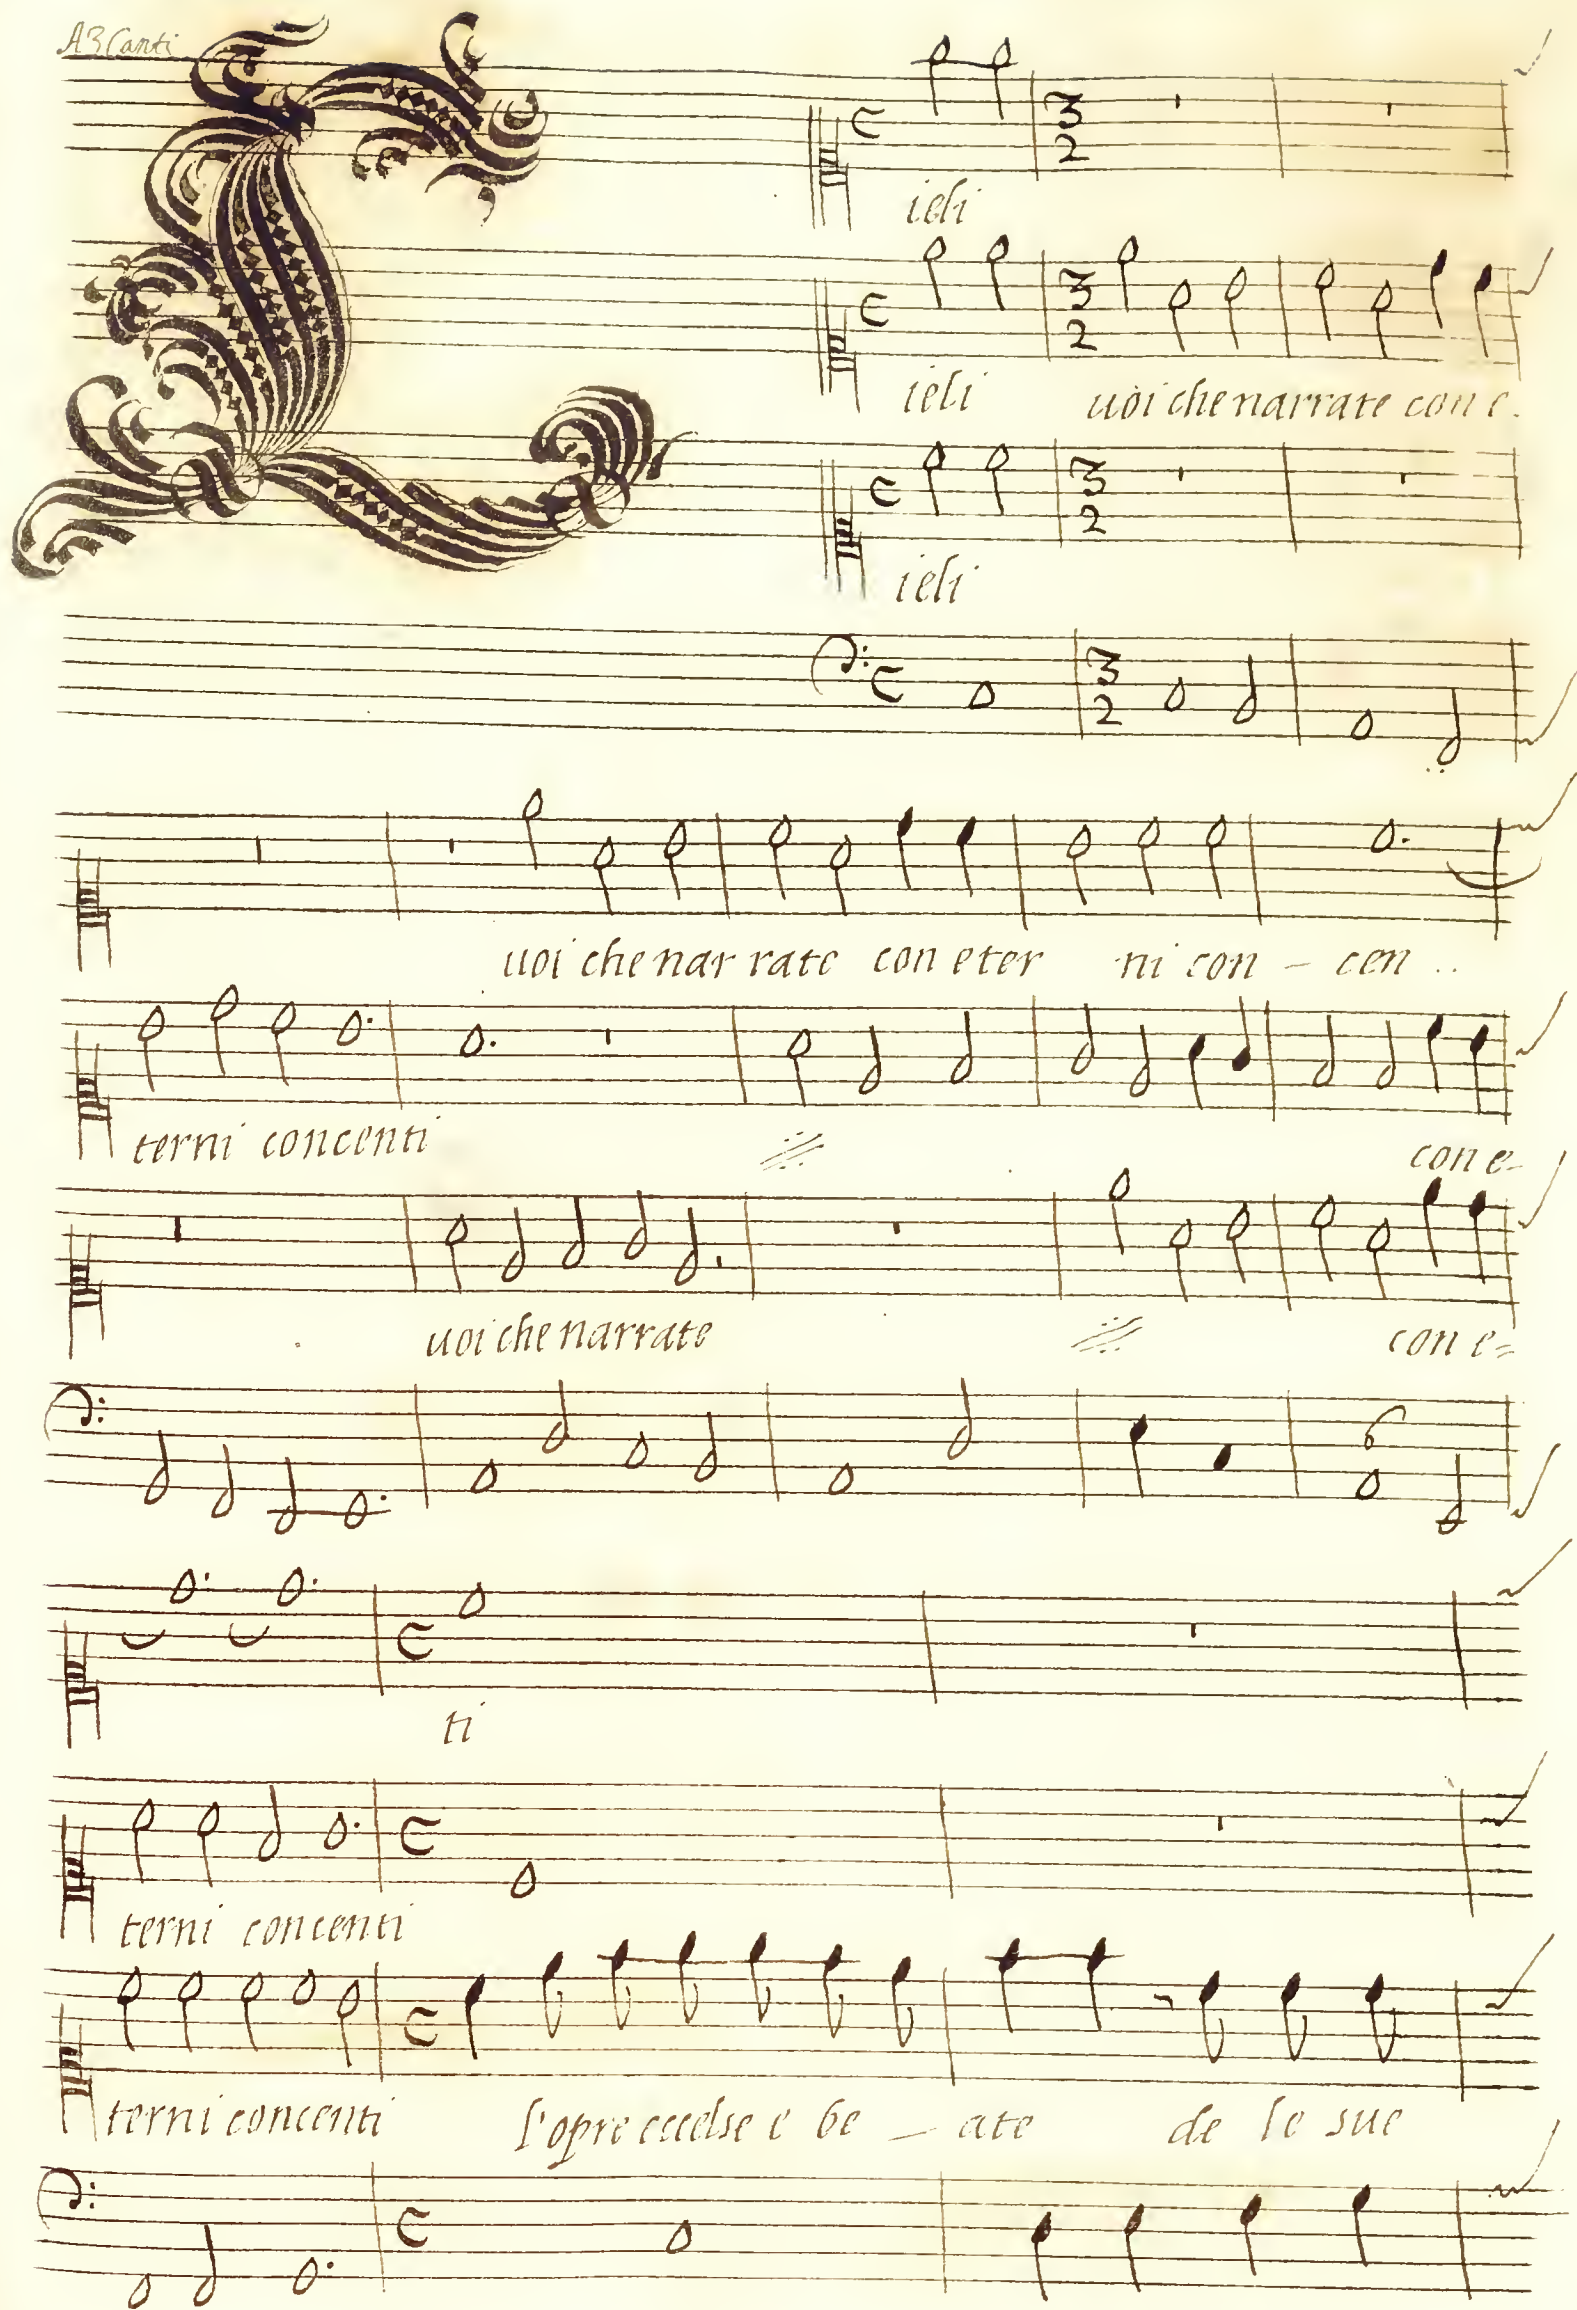 A 3 Canti
ieli
C
ieli uoi che narrate con e-
ieli
uoi che narrate con eter ni con - cen ..
terni concenti con e-
uoi che narrate con e=
6
ti
terni concenti
terni concenti l'opre eccelse e be - ate de le sue